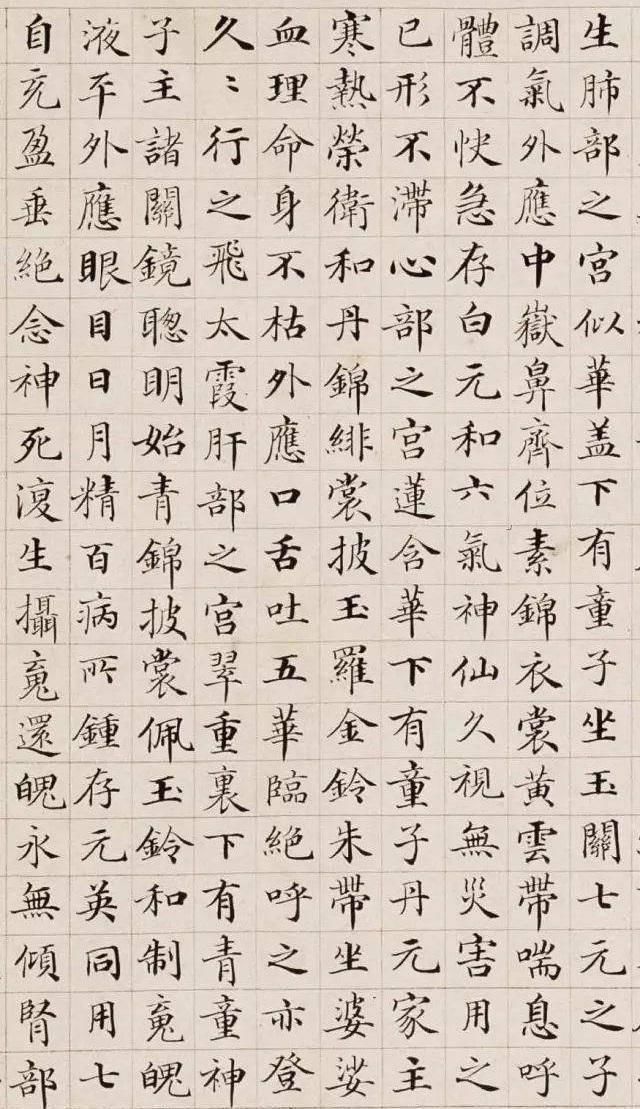 生肺部之宮似華盖下有童子坐玉關七元之子
調氣外應中嶽鼻齊位素錦衣裳黃雲帶喘息呼
體不快急存白元和六氣神仙久視無災害用之
已形不滯心部之宮蓮含華下有童子丹元家主
寒熱榮衛和丹錦緋裳披玉羅金鈴朱帶坐婆娑
血理命身不枯外應口舌吐五華臨絕呼之亦登
久〻行之飛太霞肝部之宮翠重裏下有青童神
子主諸關鏡聰明始青錦披裳佩玉鈴和制䰟魄
液平外應眼目日月精百病所鍾存元英同用七
自充盈垂絕念神死復生攝䰟還魄永無傾腎部